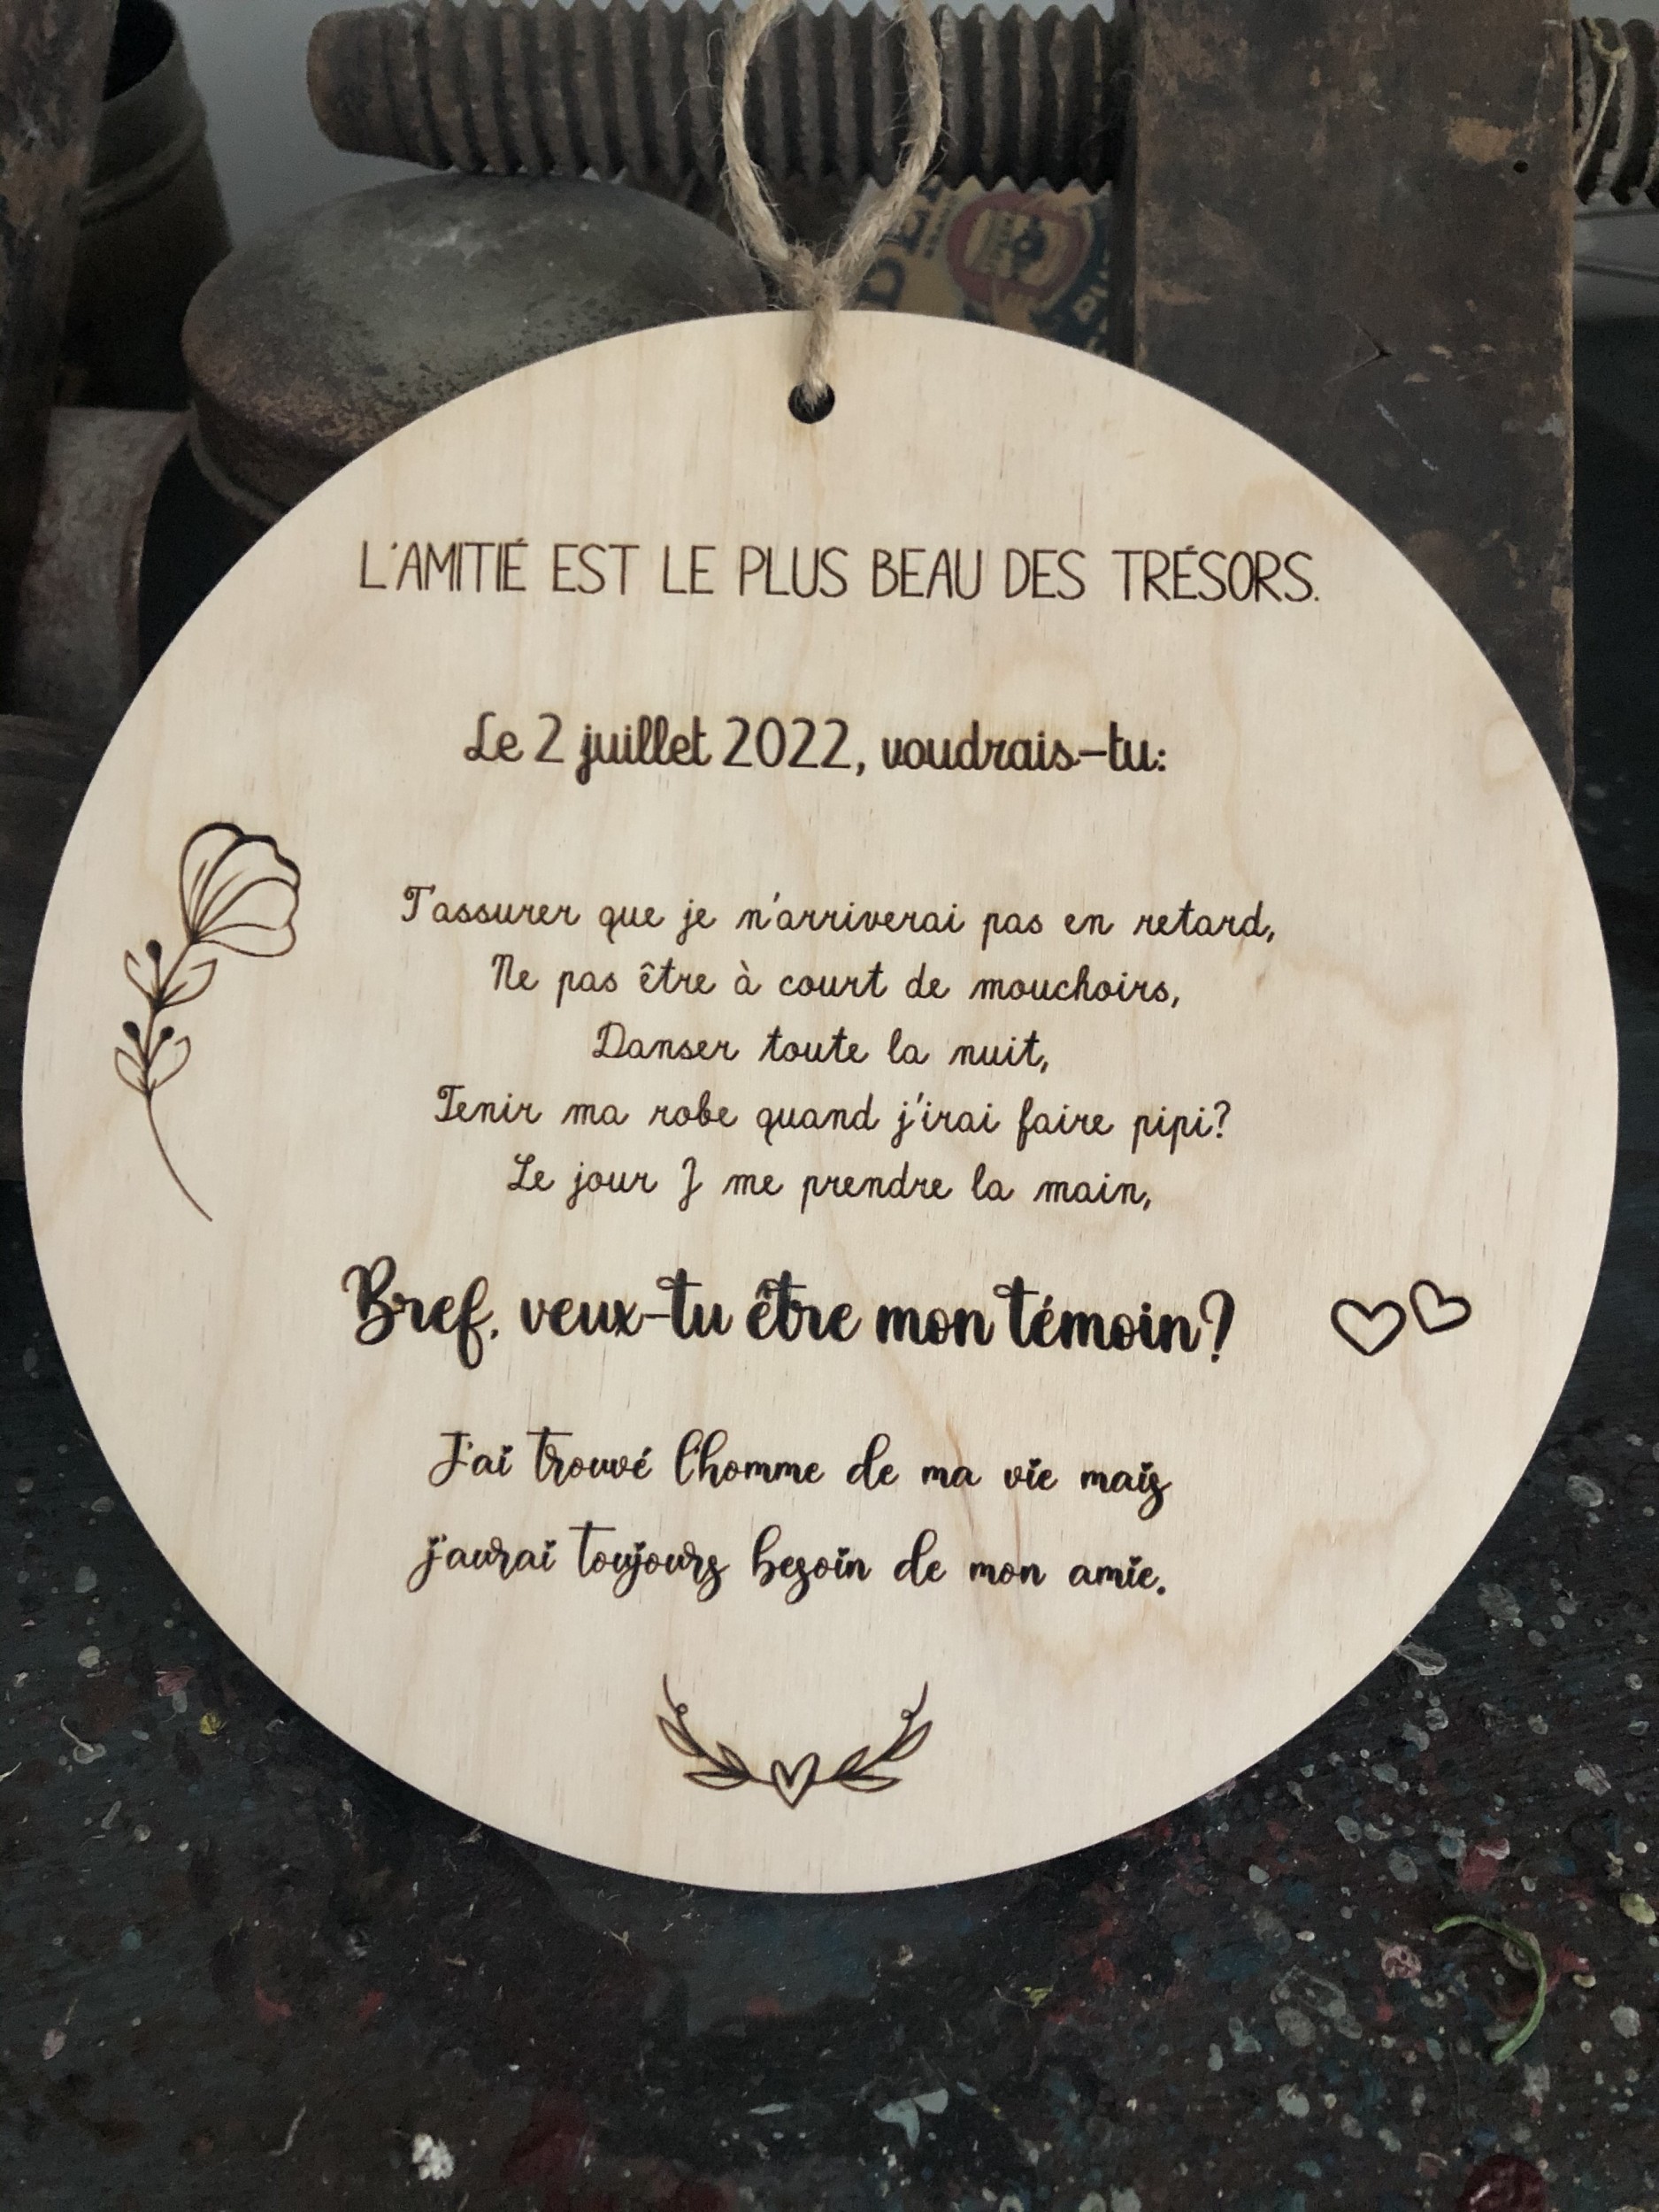 L'AMITIÉ EST LE PLUS BEAU DES TRÉSORS.
Le 2 juillet 2022, voudrais-tu:
T'assurer que je n'arriverai pas en retard,
Ne pas être à court de mouchoirs,
Danser toute la nuit,
Tenir ma robe quand j'irai faire pipi?
Le jour J me prendre la main,
Bref, veux-tu être mon témoin?
J'ai trouvé l'homme de ma vie mais
j'aurai toujours besoin de mon amie.